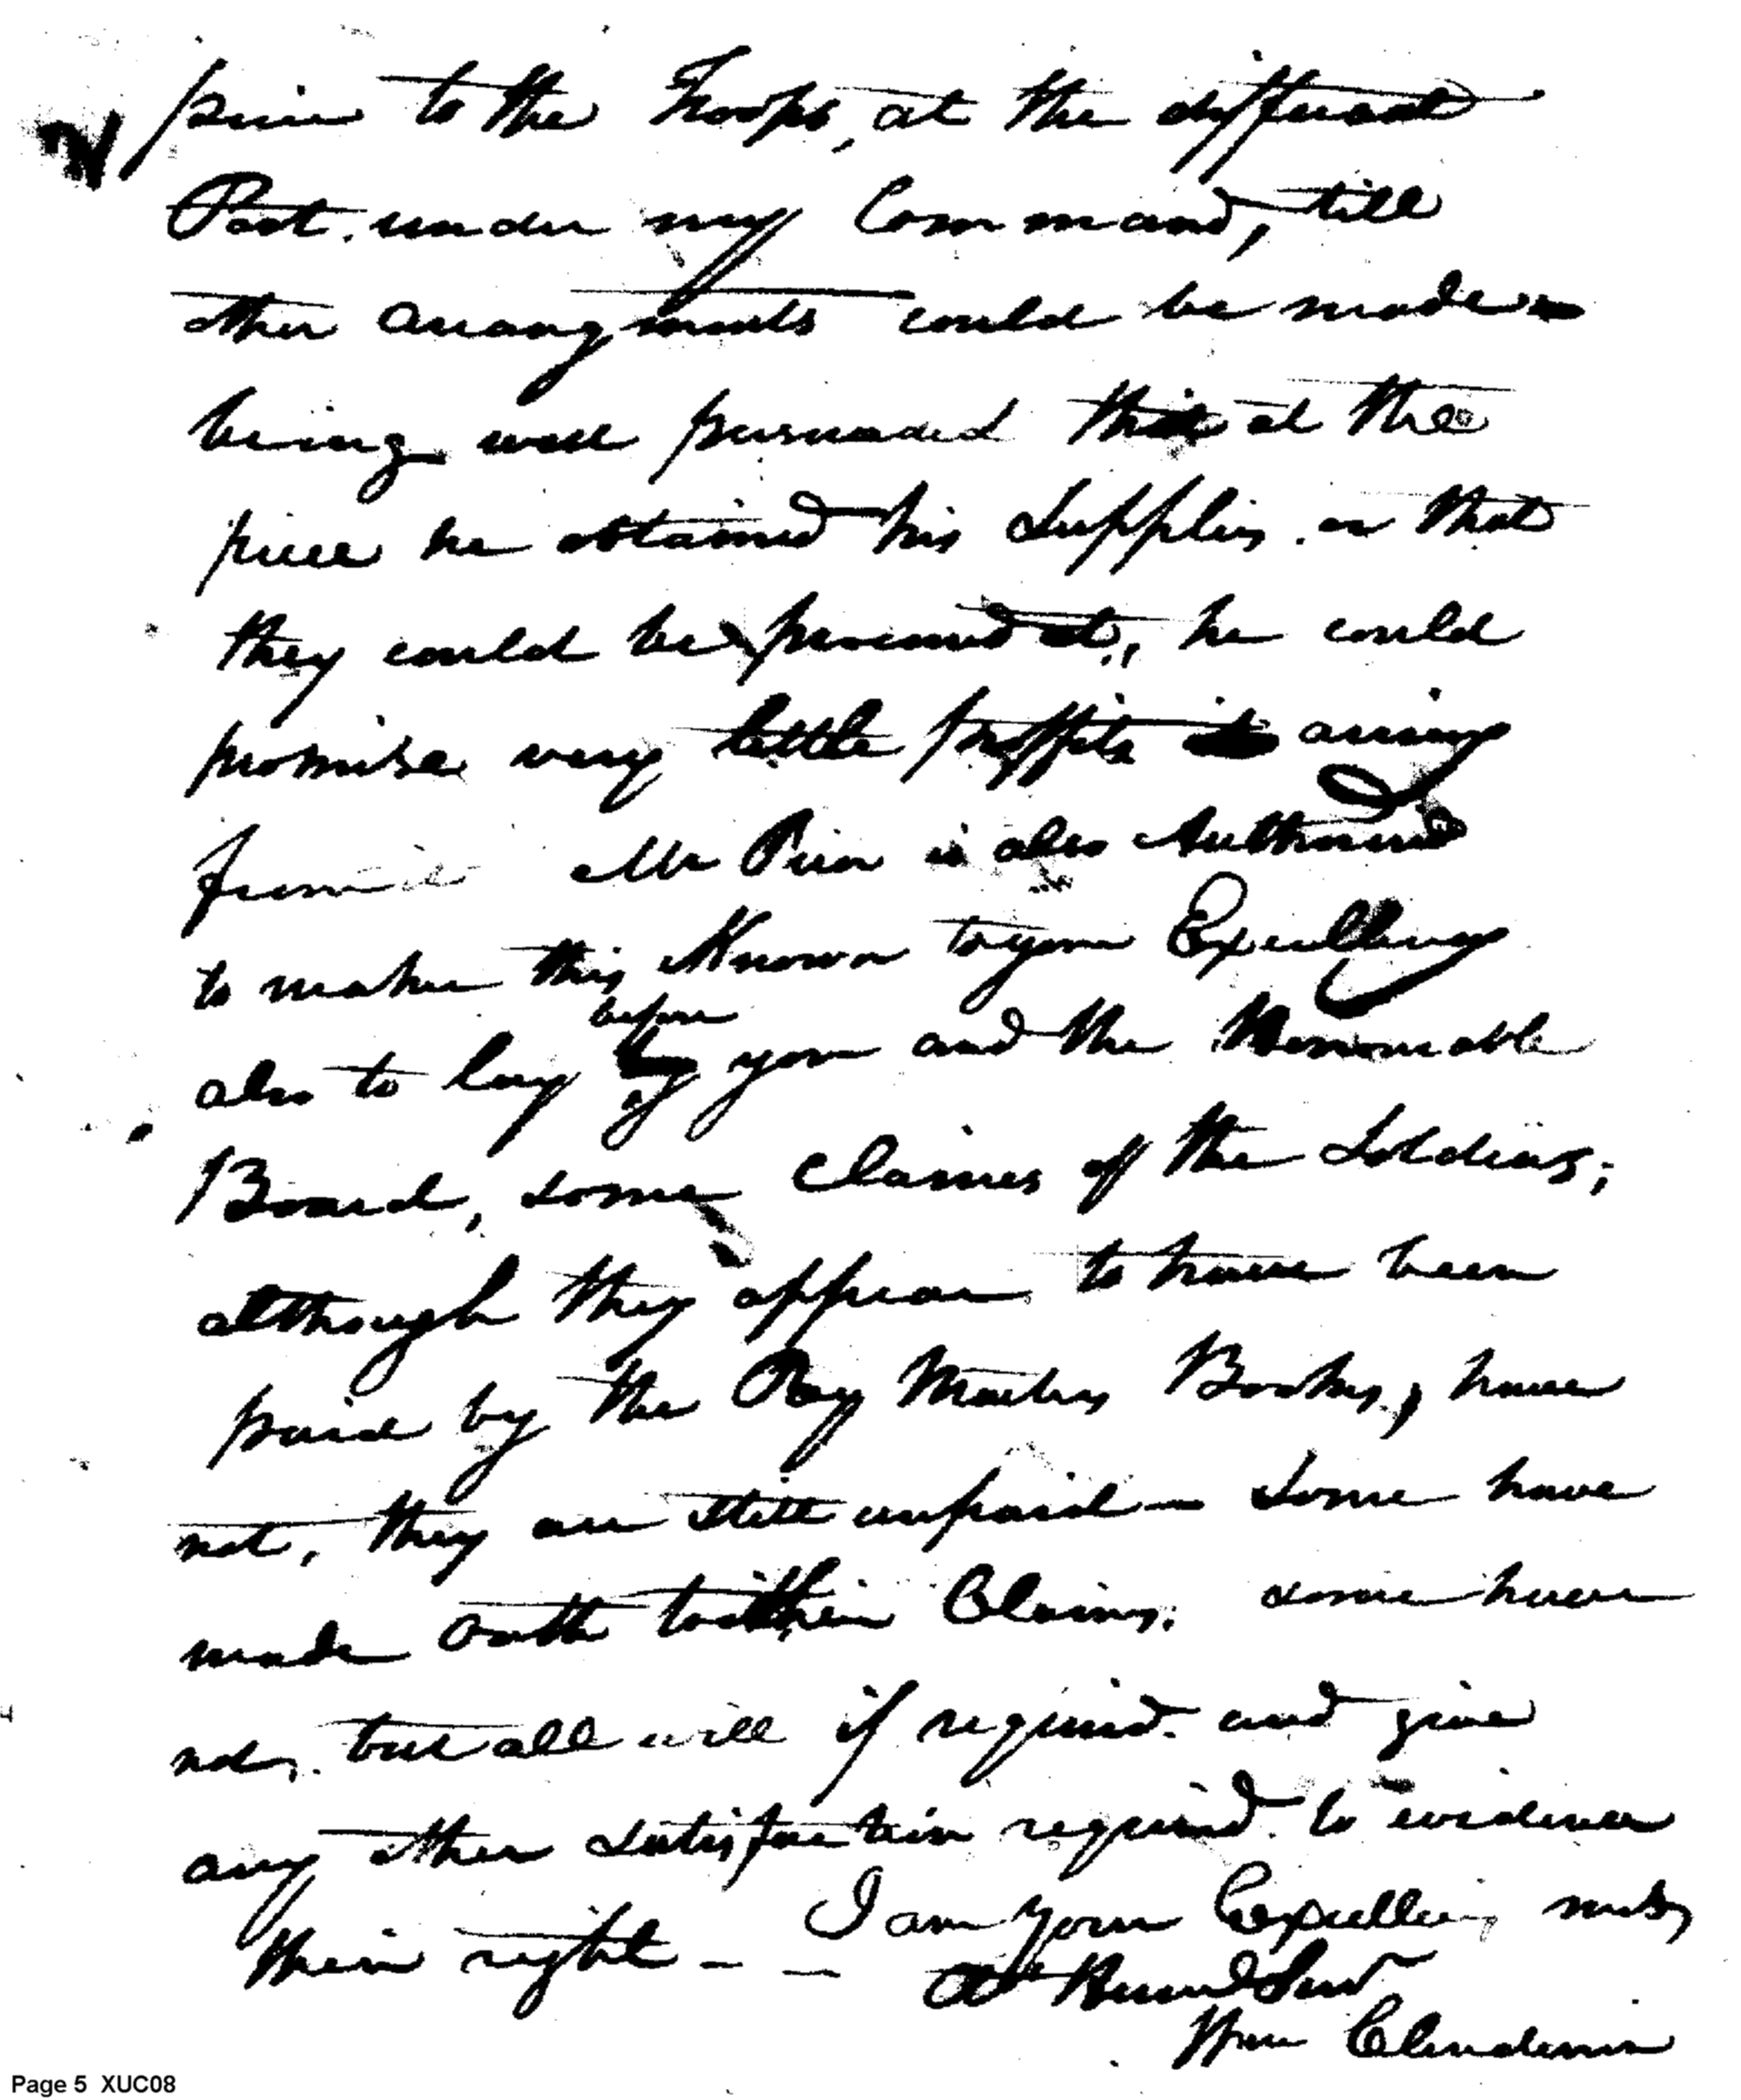 to the Troops, at the different
Post. under my Command, till
other arrangments could be made
being well persuaded that at the
price he obtained his Supplies. or that
they could be procured at, he could
promise very little proffits arising
from it Mr Pior is also Authorised
to make this Known to your Excellency
also to lay before you and the Honourable
Board, some claims of the Soldiers;
although they appear to have been
paid by the Pay Masters Books, have
not, they are still unpaid – some have
made Oath to their Claims. some have
not, but all will if required. and give
any other satisfaction required. to evidence
their right – – I am your Excellency most
Obt Humbl Servt
Wm Clendenin
Page 5 XUC08